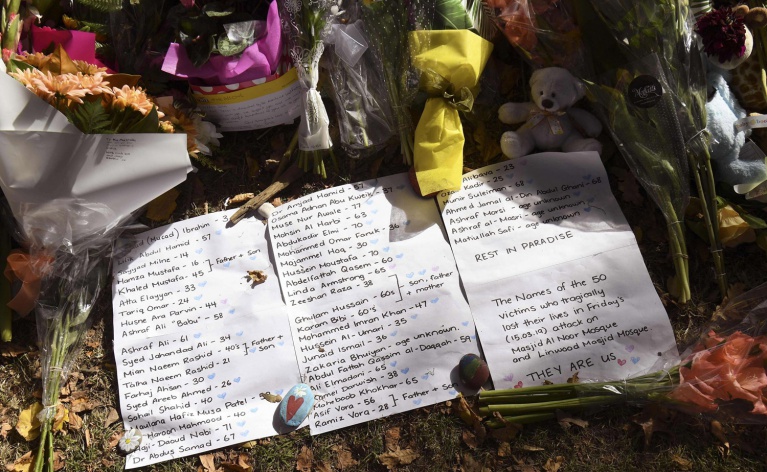 (Mucad) Ibrahim - 3
Abdul Hamid - 57
Sayyad Milne - 14
Hamza Mustafa - 16
Khaled Mustafa - 45
Father + son
Atta Elayyan - 33
Tariq Omar - 24
Husne Ara Parvin - 44
Ashraf Ali "Babu" - 58
Ashraf Ali - 61
Syed Jahandad Ali - 34
Mian Naeem Rashid - 40s
Talha Naeem Rashid - 21
Father + son
Farhaj Ahsan - 30
Syed Areeb Ahmed - 26
Sohail Shahid - 40
Maulana Hafiz Musa Patel -
Haroon Mahmood - 40
Haji-Daoud Nabi - 71
Dr Abdus Samad - 67
Dr Amjad Hamid - 57
Osama Adnan Abu Kweik - 37
Muse Nur Awale - 77
Mohsin Al Harbi - 63
Abdukadir Elmi - 70
Mohammed Omar Faruk - 36
Mojammel Hoq - 30
Hussein Moustafa - 70
Abdelfattah Qasem - 60
Linda Armstrong - 65
Zeeshan Raza - 38
Ghulam Hussain - 60s
Karam Bibi - 60's
son, father + mother
Mohammed Imran Khan - 47
Hussein Al-Umari - 35
Junaid Ismail - 36
Zakaria Bhuiyan - age unknown.
Abdul Fattah Qassim al-Daqqah - 59
Ali Elmadani - 66
Kamel Darwish - 38
Mehrboob Khokhar - 65
Asif Vora - 56
Ramiz Vora - 28
Father + Son
Alibava - 25
Kadir - 25
Munir Suleiman - 68
Ahmed Jamal al-Din Abdul Ghani - 68
Ashraf Morsi - age unknown
Ashraf al-Masri - age unknown
Matiullah Safi - age unknown
REST IN PARADISE
The Names of the 50
victims who tragically
lost their lives in Friday's
(15.03.19) attack on
Masjid Al Noor Mosque
and Linwood Masjid Mosque
THEY ARE US